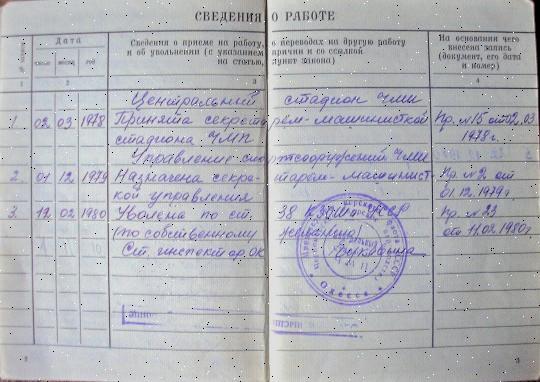 СВЕДЕНИЯ О РАБОТЕ
Дата
Сведения о приеме на работу, о переводах на другую работу
и об увольнении (с указанием причин и со ссылкой
на статью, пункт закона)
На основании чего
внесена запись
(документ, его дата
и номер)
число месяц год
1 2 3 4
Центральный стадион ЧМП
1. 02 03 1978 Принята секретарём-машинисткой Пр. №15 от 02.03
стадиона ЧМП 1978г.
Управление спортсооружений ЧМП
2. 01 12 1979 Назначена секретарём-машинист- Пр. №2 от
кой управления 01.12.1979г
3. 12 02 1980 Уволена по ст. 38 КЗоТ УССР Пр. №23
(по собственному желанию) от 11.02.1980г
Ст. инспектор ОК
Одесса